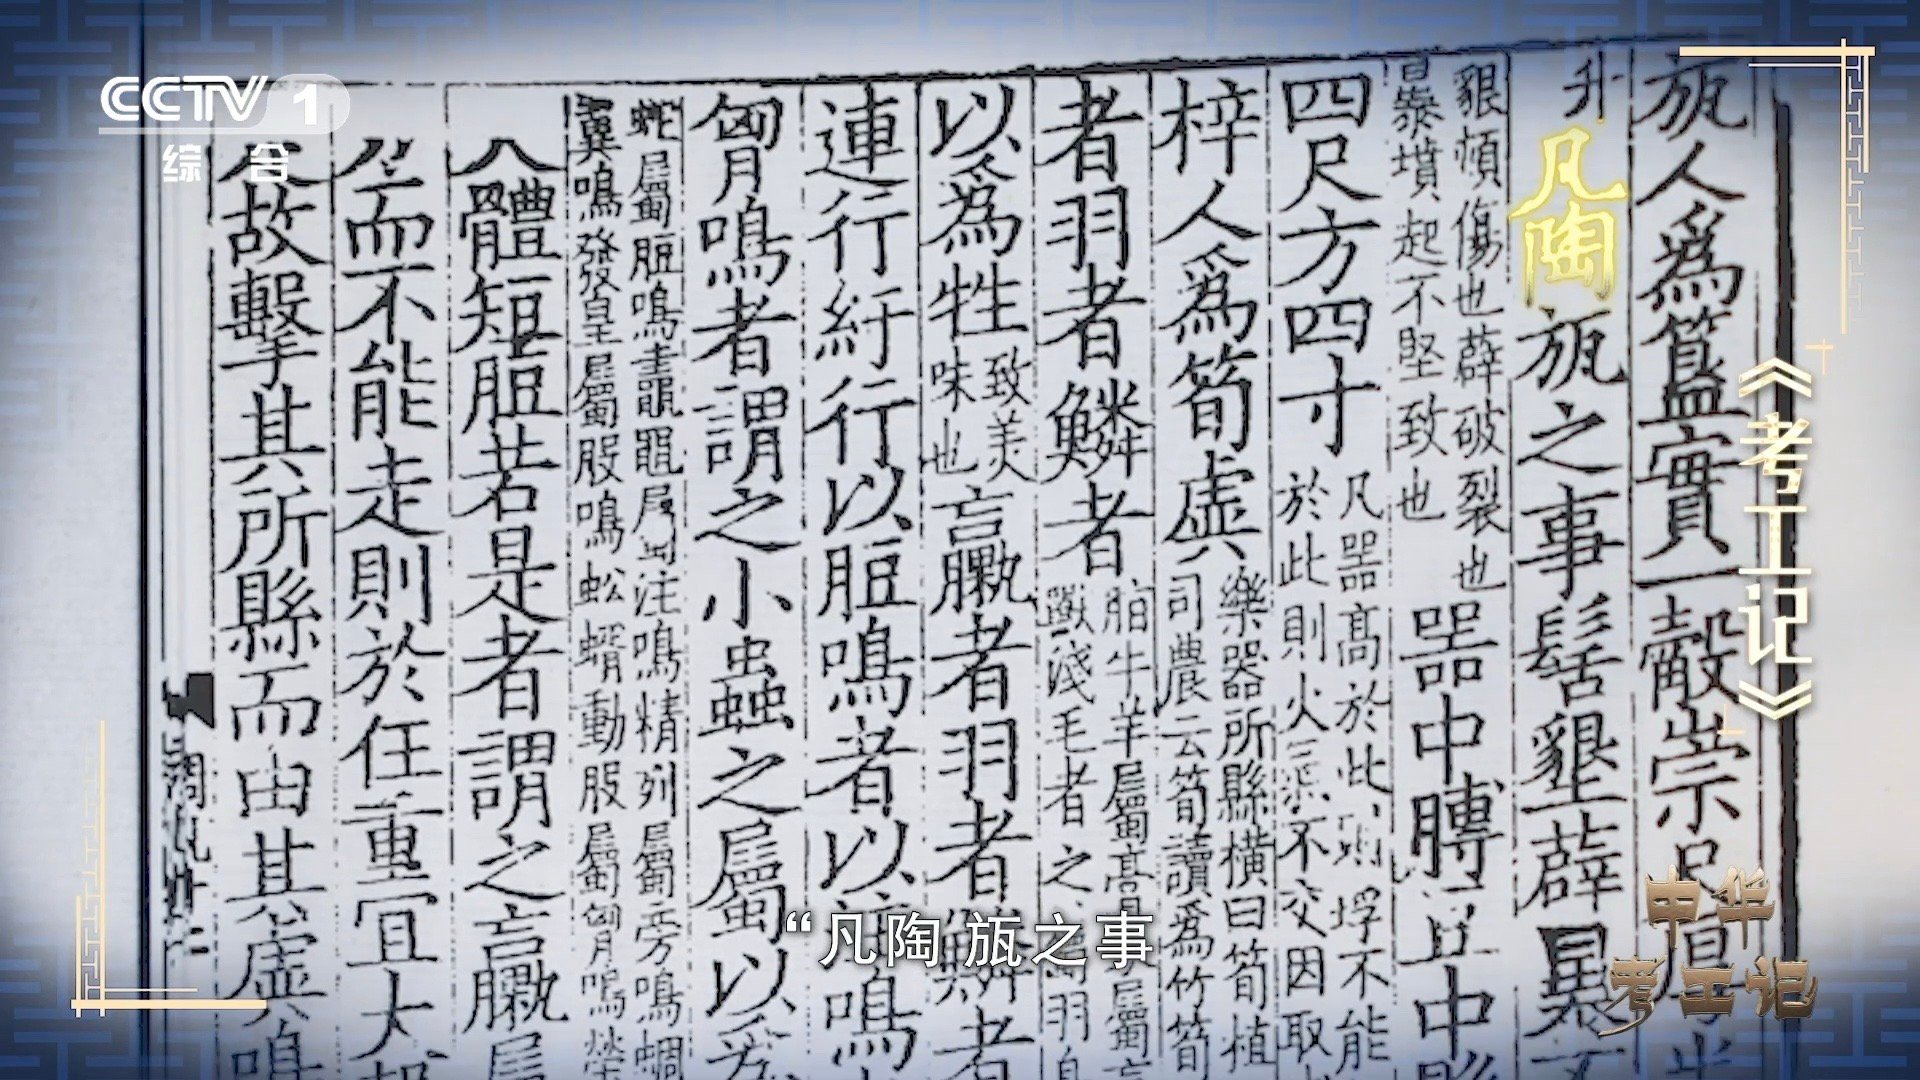 CCTV 1
综合
《考工记》
瓬人爲簋實一觳崇尺厚半
升凡陶瓬之事髺墾薜暴不
豤頓傷也薜破裂也
暴墳起不堅致也
器中膊豆中縣
四尺方四寸
凡器高於此則垺不能
於此則火氣不交因取
梓人爲筍虡
樂器所縣橫曰筍植
司農云筍讀爲竹筍
者羽者鱗者
脂牛羊屬膏屬
獸淺毛者之羽鳥
以爲牲
致美
味也
臝者羽者鱗者
連行紆行以脰鳴者以注鳴
匈鳴者謂之小蟲之屬以爲
蛇屬脰鳴鼃黽屬注鳴精列屬旁鳴蜩
翼鳴發皇屬股鳴蚣蝑動股屬匈鳴榮
大體短脰若是者謂之臝屬
而不能走則於任重宜大
故擊其所縣而由其虡鳴
“凡陶瓬之事
中华
考工记